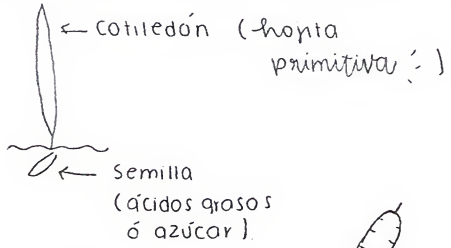 cotiledón (hojita
primitiva :)
semilla
(ácidos grasos
ó azúcar)